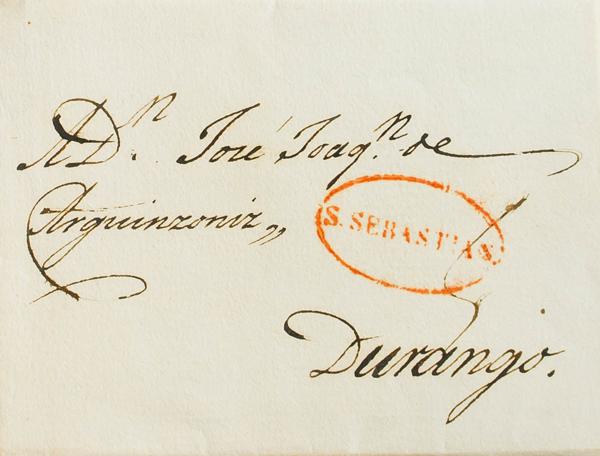 A Dn. José Joaqn. de
Arguinzoniz„
S. SEBASTIAS.
Durango.